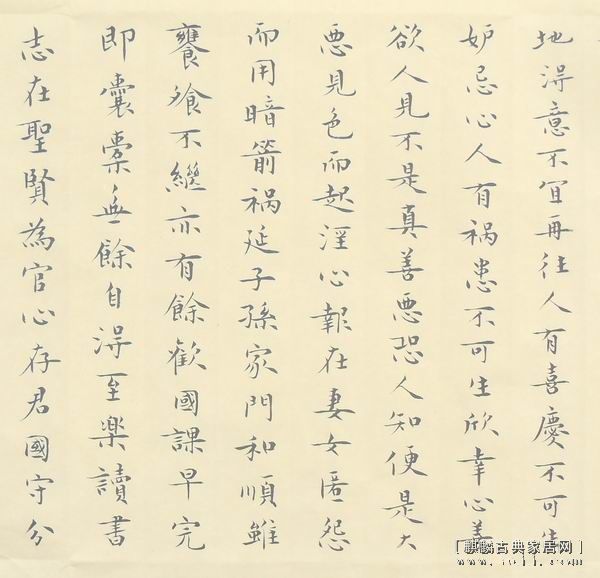 地得意不宜再往人有喜慶不可生
妒忌心人有禍患不可生欣幸心善
欲人見不是真善惡恐人知便是大
惡見色而起淫心報在妻女匿怨
而用暗箭禍延子孫家門和順雖
饔飧不繼亦有餘歡國課早完
即囊橐無餘自得至樂讀書
志在聖賢為官心存君國守分
[麒麟古典家居网]